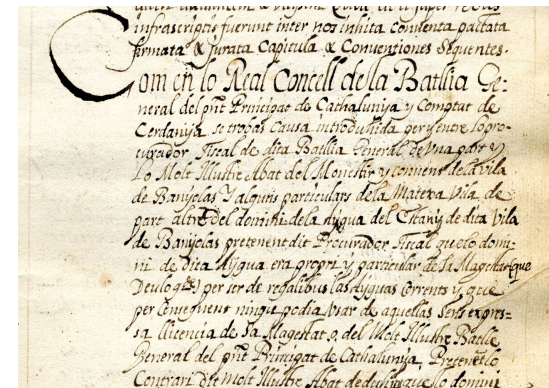 infrascriptis fuerunt inter nos inhita conventa pactata
firmata & jurata Capitula & Conventiones Seguentes.
Com en lo Real Concell de la Batllia Ge-
neral del pnt Principat de Cathalunya y Comptat de
Cerdanija se tropia Causa introduhida per y entre lo pro-
curador fiscal de dita Batllia General de una part y
Lo Molt Illustre Abat del Monestir y convent de la vila
de Banjolas Y alguns particulars de la Matexa Vila de
part altre del domini de la Aygua del Estany de dita Vila
de Banjolas pretenent dit Procurador fiscal que lo domi-
ni de dita Aygua era propri y particular de sa Magestat (que
Deu lo gde) per ser de regalibus las Ayguas Corrents y que
per Conseguent ningu podia Usar de aquellas sens expres-
sa llicencia de Sa Magestat o, del Molt Illustre Batlle
General del pnt Principat de Cathalunya, Pretenent lo
Contrari dit Molt Illustre Abat de que lo domini